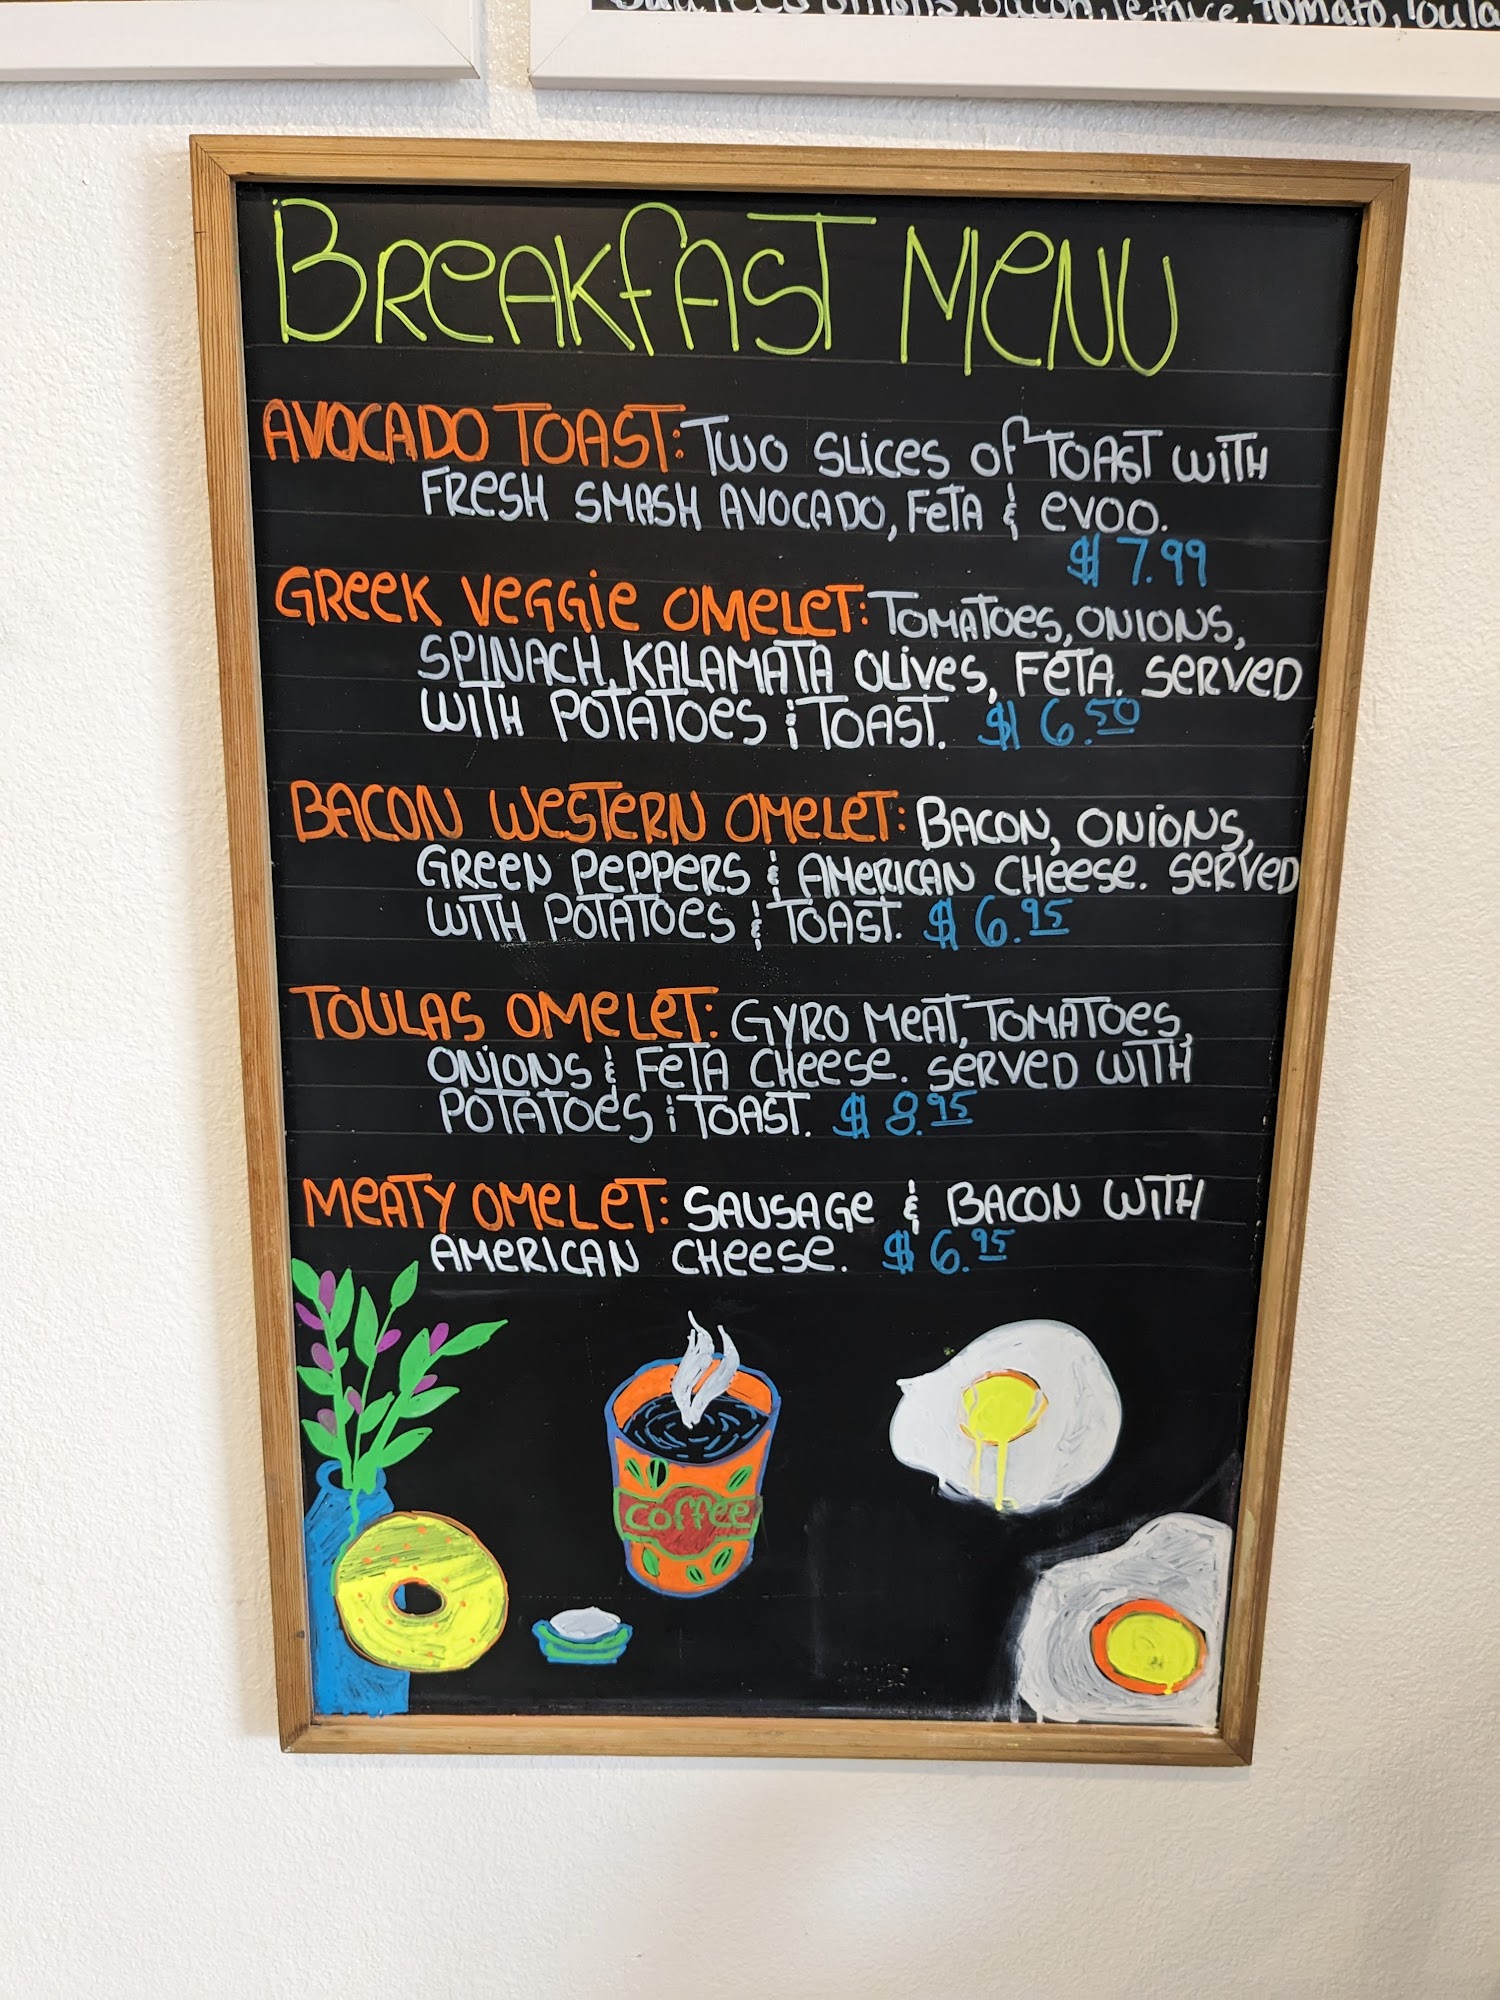 onions, bacon, lettuce, tomato,
BReAKfAST MeNU
AVOCADO TOAST: TWO SLiCeS Of TOAST WiTH
FReSH SMASH AVOCADO, FeTA & eVOO.
$7.99
GReeK VeGGie OMeLeT: TOMATOeS, ONIONS,
SPINACH, KALAMATA OLiVeS, FeTA. SeRVeD
WITH POTATOeS & TOAST. $6.50
BACON WeSTeRN OMeLeT: BACON, ONiONS,
GReeN PePPeRS & AMeRICAN CHeeSe. SeRVeD
WITH POTATOeS & TOAST. $6.95
TOULAS OMeLeT: GYRO MeAT, TOMATOeS,
ONiONS & FeTA CHeeSe. SeRVeD WITH
POTATOeS & TOAST. $8.95
MeATY OMeLeT: SAUSAGe & BACON WITH
AMeRICAN CHeeSe. $6.95
coffee